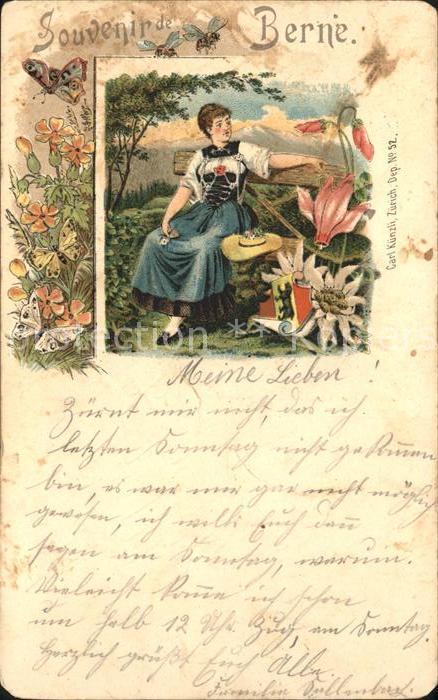 Souvenir de Berne.
Carl Künzli, Zürich, Dep. No 52.
Meine Lieben!
Zürnt mir nicht, das ich
letzten Sonntag nicht gekommen
bin, es war mir gar nicht möglich
gewesen, ich will's Euch dann
sagen am Sonntag, warum.
Vieleicht komme ich schon
um halb 12 Uhr Zug, am Sonntag.
Herzlich grüßt Euch Alle
Familie